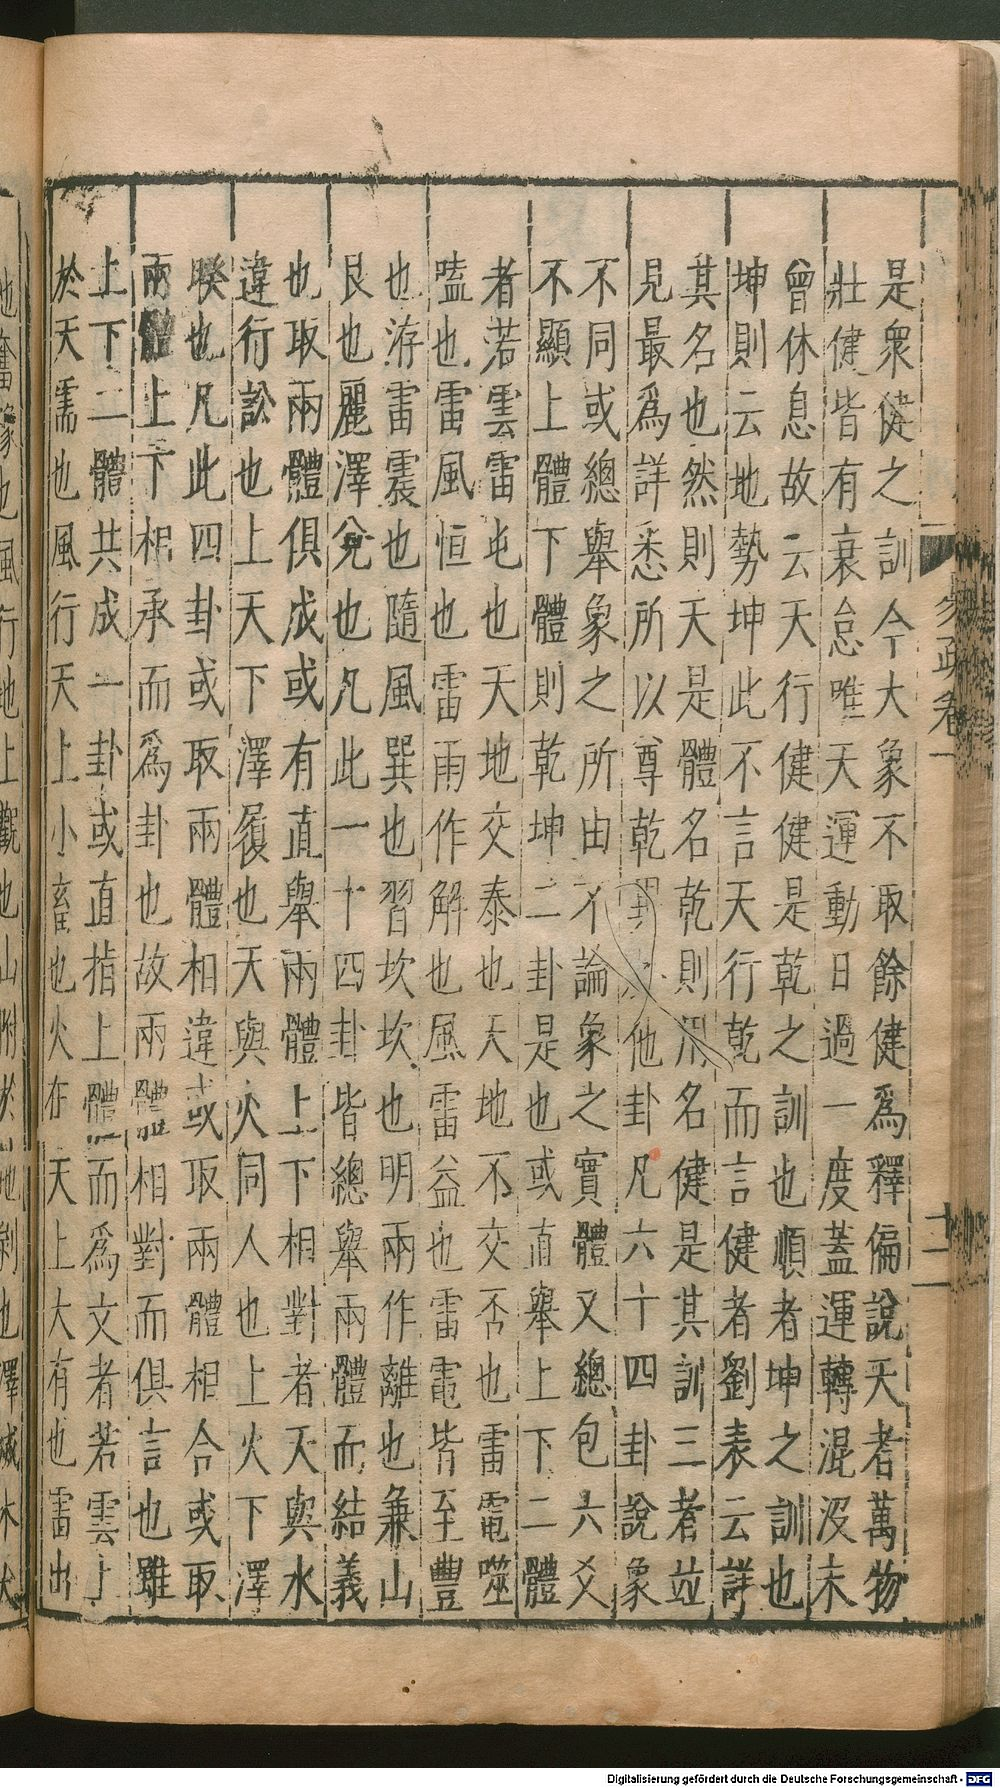 是衆健之訓今大象不取餘健爲釋偏說天者萬物
壯健皆有衰怠唯天運動日過一度蓋運轉混沒未
曾休息故云天行健健是乾之訓也順者坤之訓也
坤則云地勢坤此不言天行乾而言健者劉表云詳
其名也然則天是體名乾則用名健是其訓三者並
見最爲詳悉所以尊乾異於他卦凡六十四卦說象
不同或總舉象之所由不論象之實體又總包六爻
不顯上體下體則乾坤二卦是也或直舉上下二體
者若雲雷屯也天地交泰也天地不交否也雷電噬
嗑也雷風恒也雷雨作解也風雷益也雷電皆至豐
也洊雷震也隨風巽也習坎坎也明兩作離也兼山
艮也麗澤兌也凡此一十四卦皆總舉兩體而結義
也取兩體俱成或有直舉兩體上下相對者天與水
違行訟也上天下澤履也天與火同人也上火下澤
睽也凡此四卦或取兩體相違或取兩體相合或取
兩體上下相承而爲卦也故兩體相對而俱言也雖
上下二體共成一卦或直指上體而爲文者若雲上
於天需也風行天上小畜也火在天上大有也雷出
地奮豫也風行地上觀也山附於地剝也澤滅木大
Digitalisierung gefördert durch die Deutsche Forschungsgemeinschaft - DFG